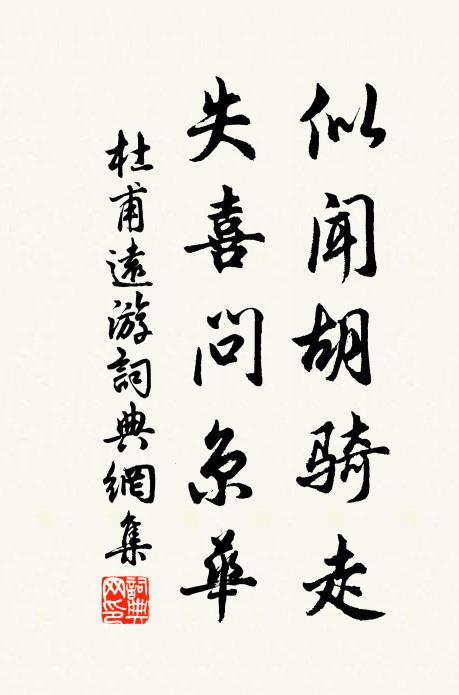 似闻胡骑走
失喜问京华
杜甫遠游詞典網集
詞典网印